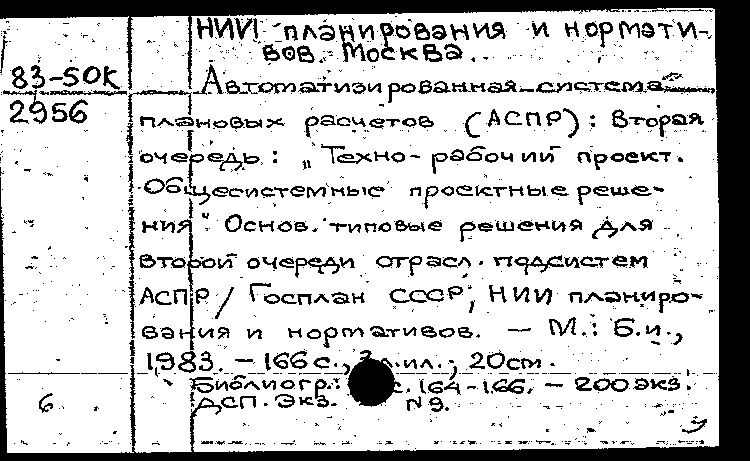 НИИ планирования и нормати-
вов. Москва.
83-50К
Автоматизированная система
2956
плановых расчетов (АСПР): Вторая
очередь: „Техно-рабочий проект.
Общесистемные проектные реше-
ния". Основ. типовые решения для
второй очереди отрасл. подсистем
АСПР / Госплан СССР, НИИ планиро-
вания и нормативов. — М.: Б.и.,
1983. — 166 с., л. ил.; 20 см.
Библиогр.: с. 164-166. — 200 экз.
6
ДСП. Экз. N 9.